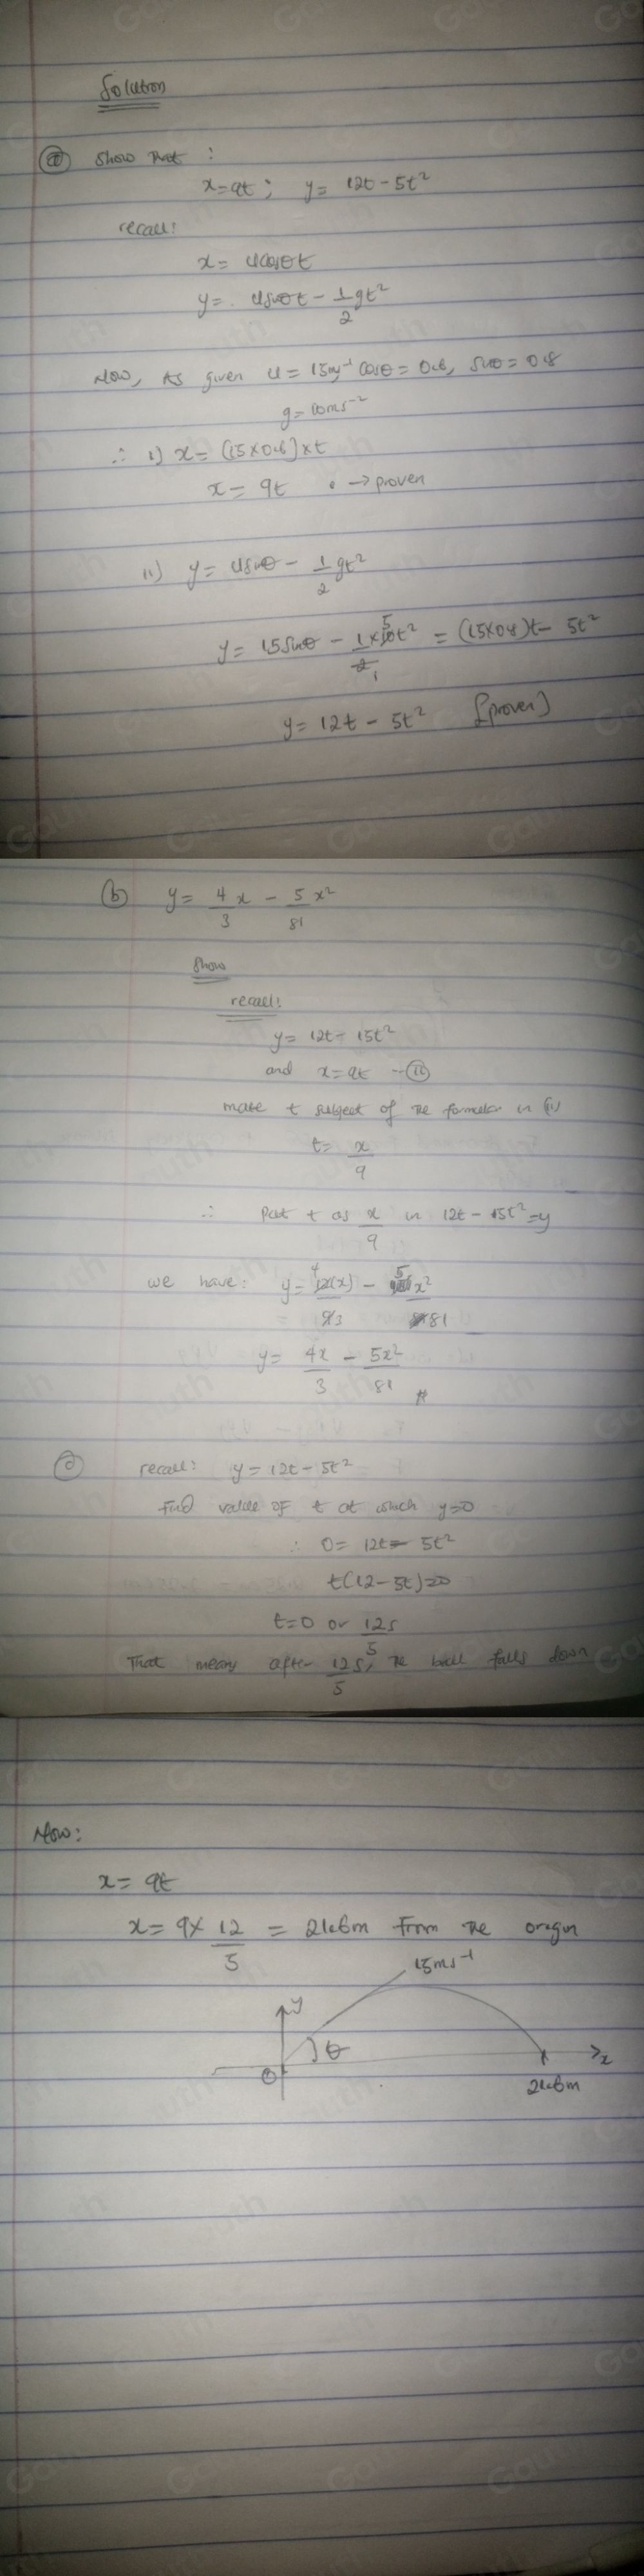 Solution
(a) Show that :
x=9t ; y = 12t - 5t²
recall:
x = ucosθt
y = usinθt - 1/2 gt²
Now, As given u = 15ms⁻¹ cosθ = 0.6, sinθ = 0.8
g = 10ms⁻²
∴ i) x = (15×0.6)×t
x = 9t → proven
ii) y = usinθ - 1/2 gt²
y = 15sinθ - 1/2 × 10t² = (15×0.8)t - 5t²
y = 12t - 5t² [proven]
(b) y = 4/3 x - 5/81 x²
Show
recall:
y = 12t - 15t²
and x = 9t -- (ii)
make t subject of the formular in (ii)
t = x/9
∴ Put t as x/9 in 12t - 15t² = y
we have: y = 12(x)/9 - 5x²/81
y = 4x/3 - 5x²/81 #
(c) recall: y = 12t - 5t²
Find value of t at which y=0
∴ 0 = 12t - 5t²
t(12-5t)=0
t=0 or 12s/5
That means after 12/5 s, the ball falls down
Now:
x = 9t
x = 9 × 12/5 = 21.6m from the origin
15ms⁻¹
y
θ
O
x
21.6m